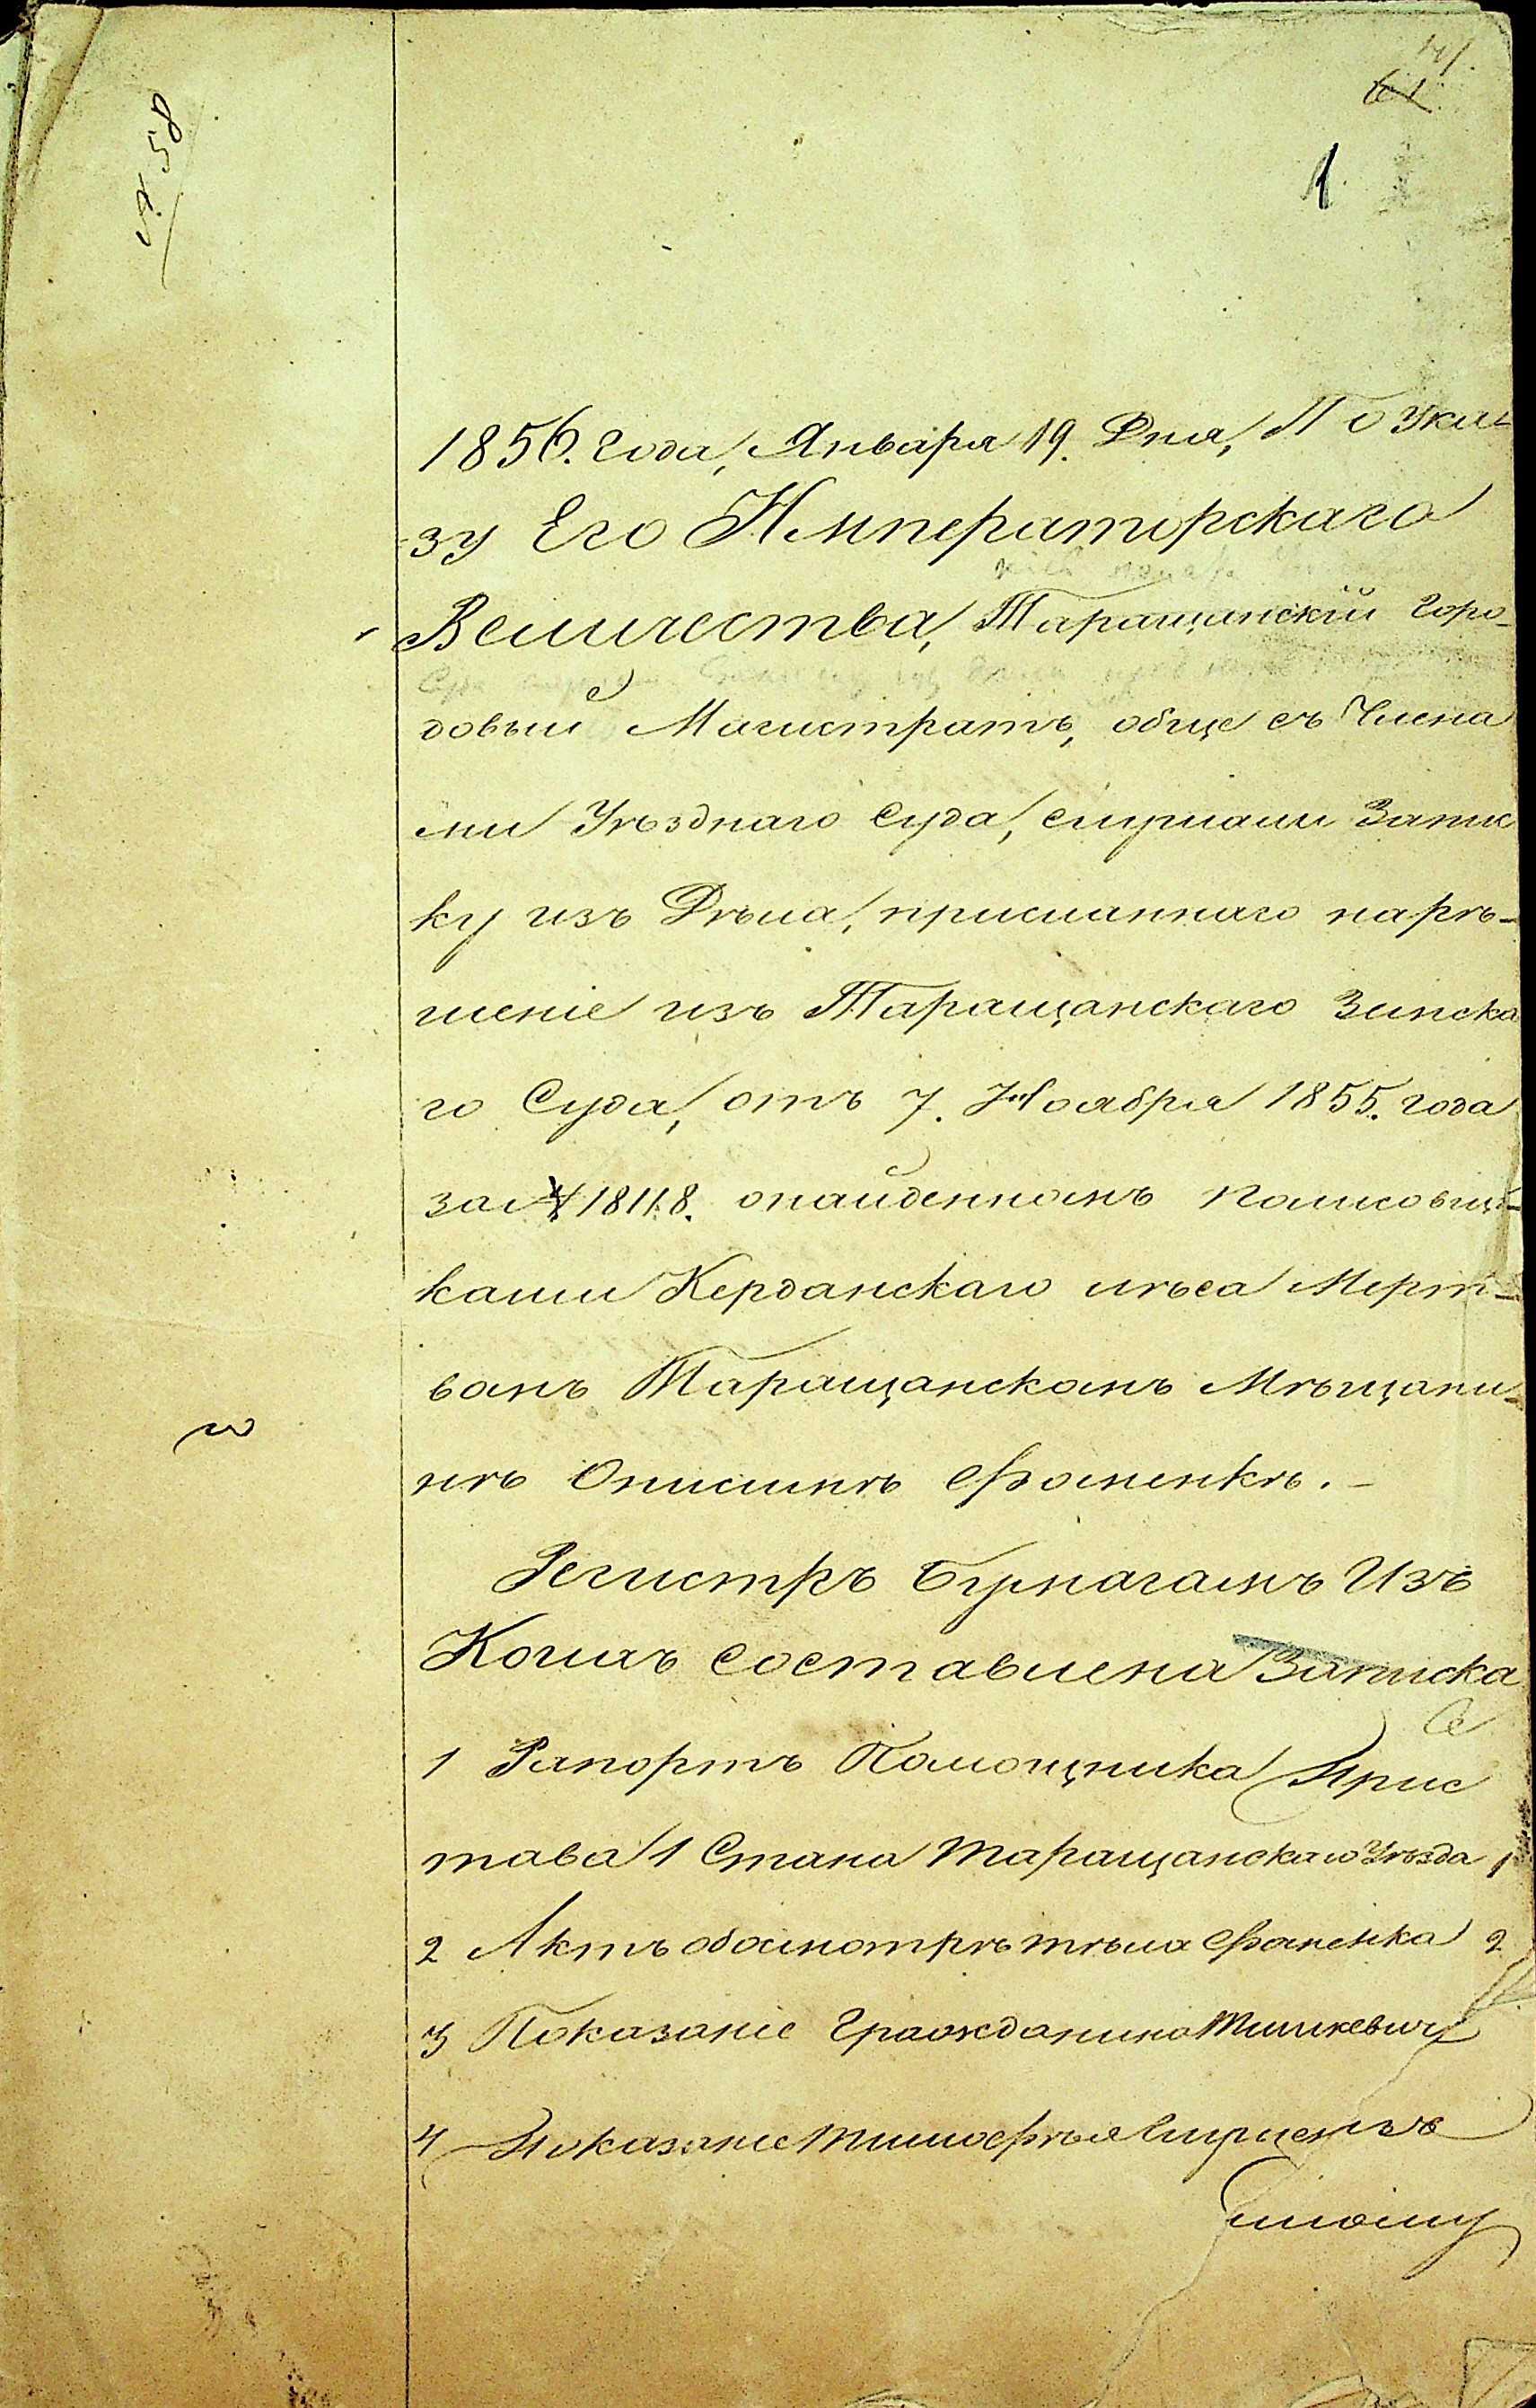 № 58
61
1.
1856. года, Января 19. Дня, По Ука-
зу Его Императорскаго
Величества, Таращанскій Горо-
довый Магистратъ, обще съ Члена
ми Уѣзднаго Суда, слушали Запис
ку изъ Дѣла, присланнаго нарѣ-
шеніе изъ Таращанскаго Земска
го Суда, отъ 7. Ноября 1855. года
за № 18118. онайденномъ полисовщи-
ками Керданскаго лѣса Мерт-
вомъ Таращанскомъ Мѣщани-
нѣ Онисимѣ Фоменкѣ.-
Регистръ Бумагамъ Изъ
Коихъ составлена Записка
1 Рапортъ Помощника Прис
тава 1 Стана Таращанскаго Уѣзда 1
2 Актъ обосмотрѣ тѣла Фоменка 2
3 Показаніе Гражданина
4 Показаніе Тимофѣя